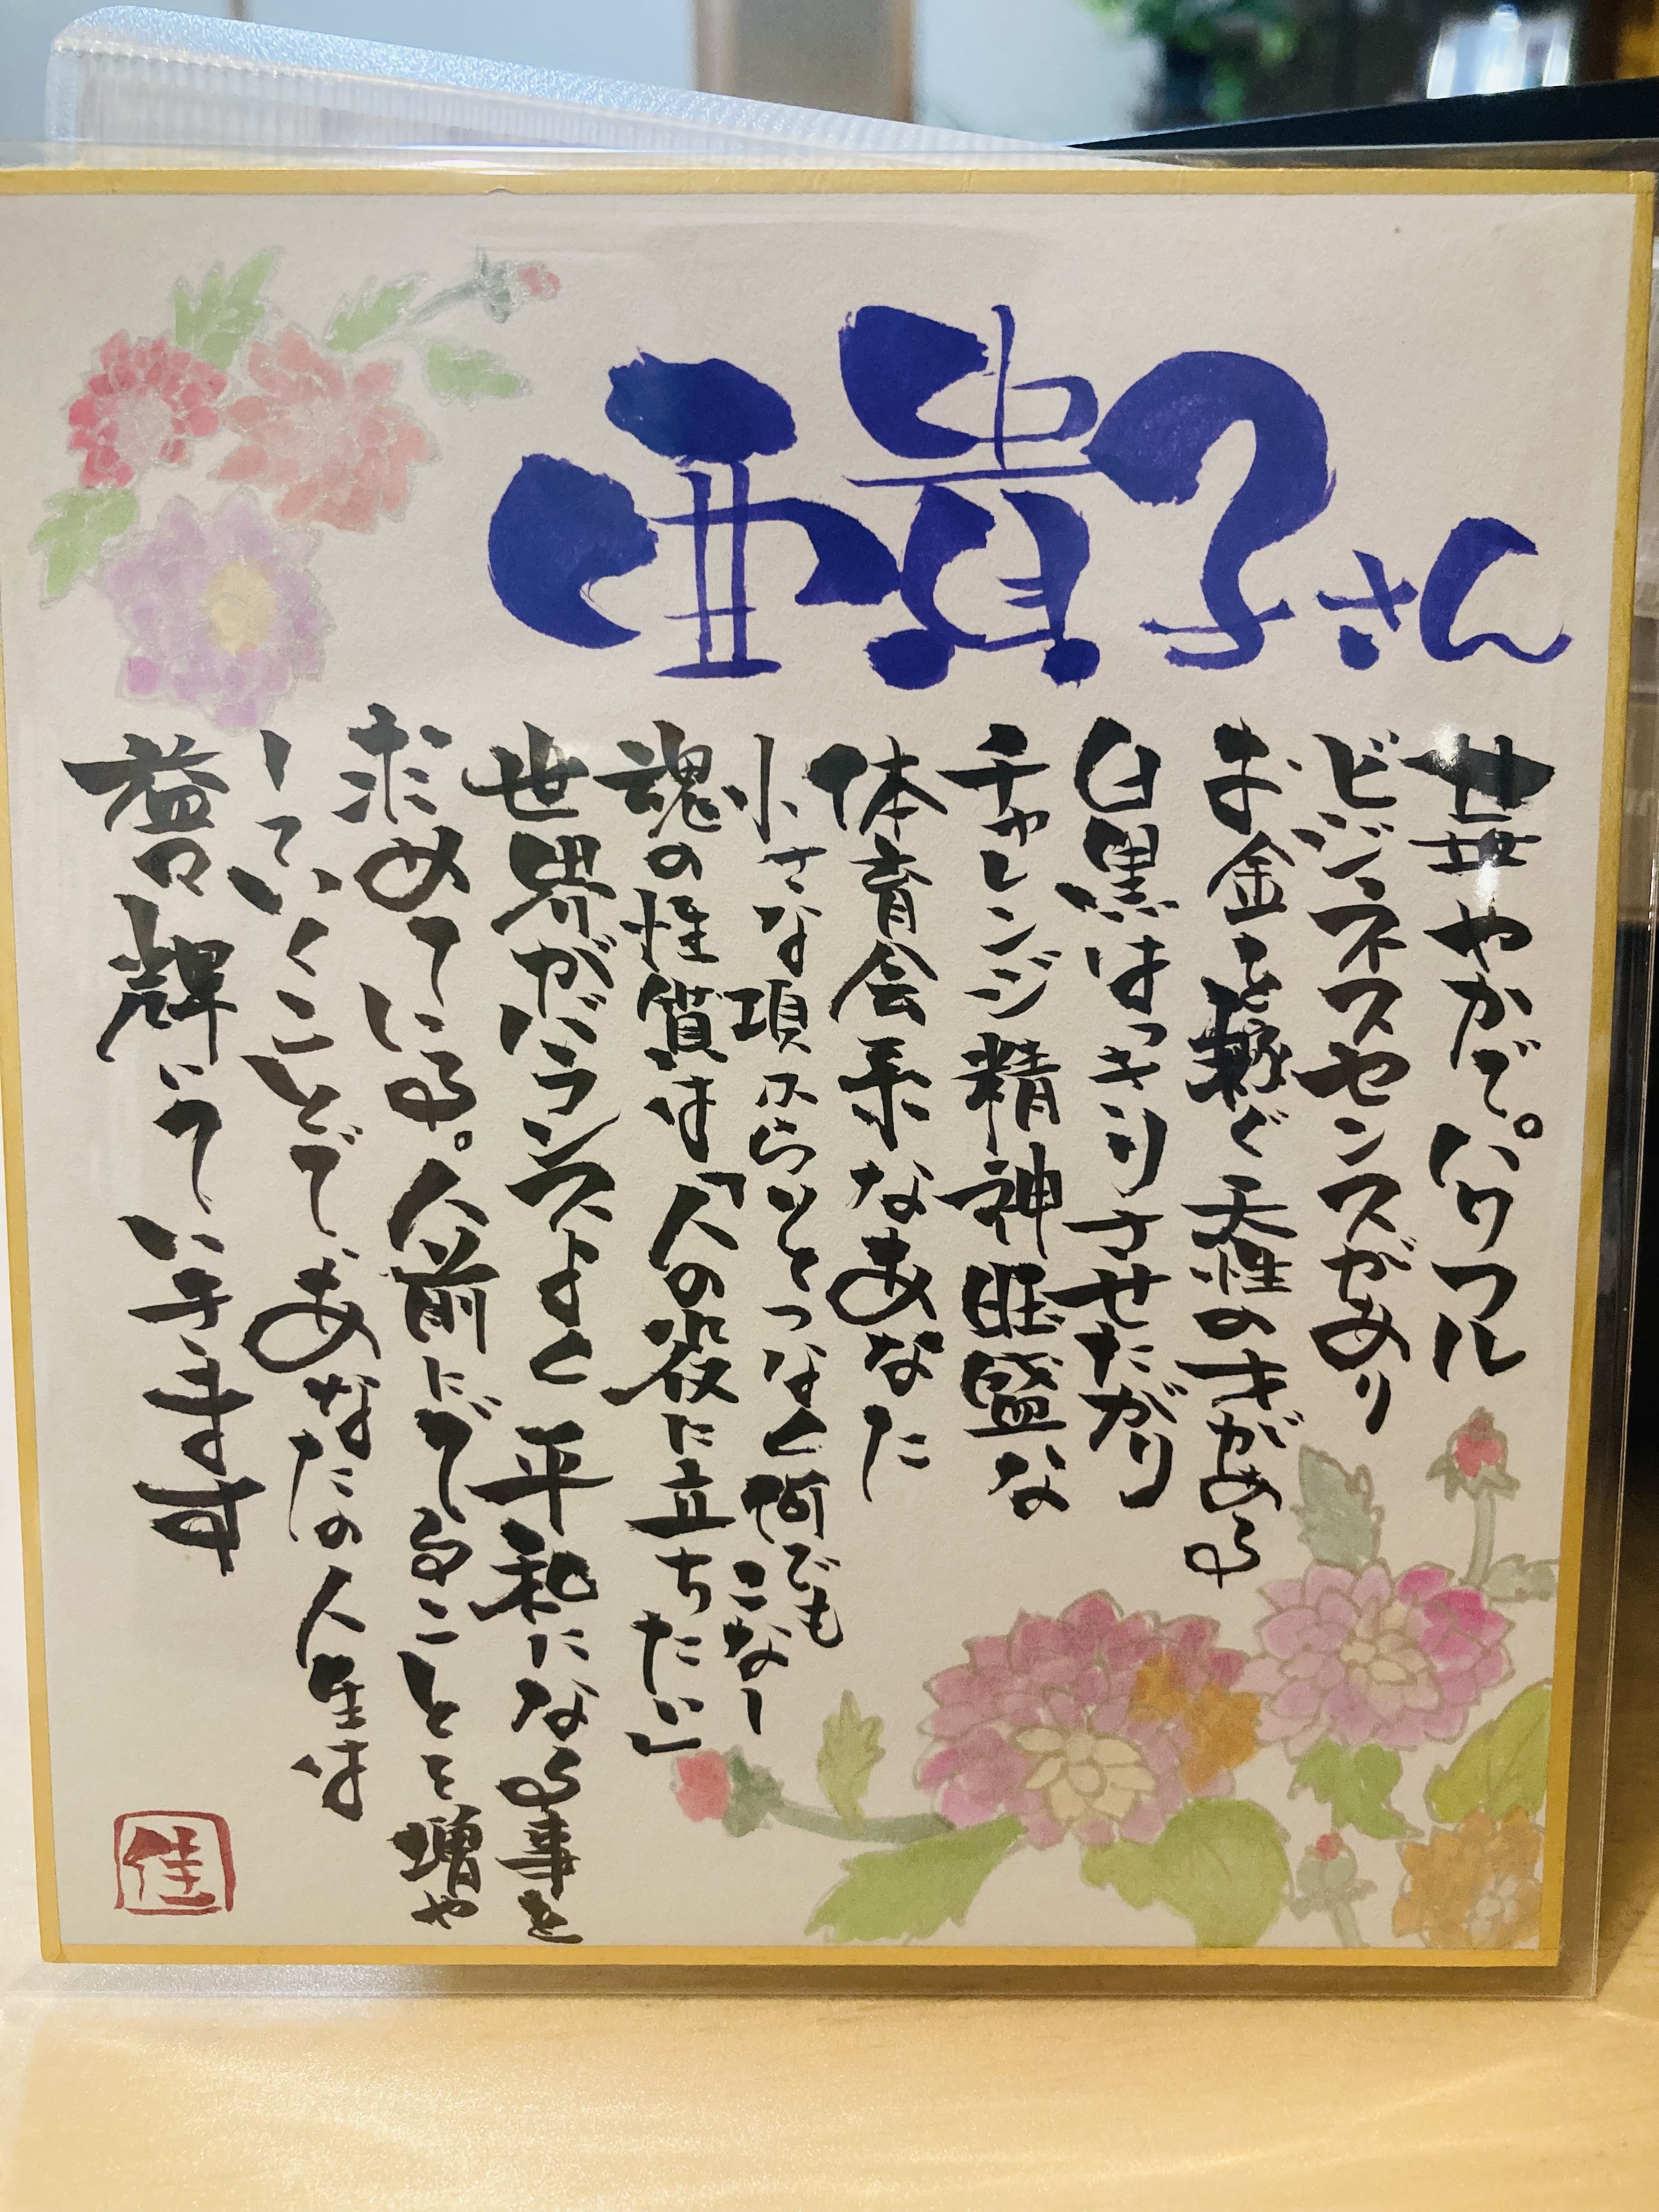 亜貴子さん
華やかで。パワフル
ビジネスセンスがあり
お金を稼ぐ天性の才がある
白黒はっきりさせたがり
チャレンジ精神旺盛な
体育会系なあなた
小さな頃からそつなく何でも
こなし
魂の性質は「人の役に立ちたい」
世界がバランスよく平和になる事を
求めている。人前にでることを増や
していくことで、あなたの人生は
益々輝いていきます
佳